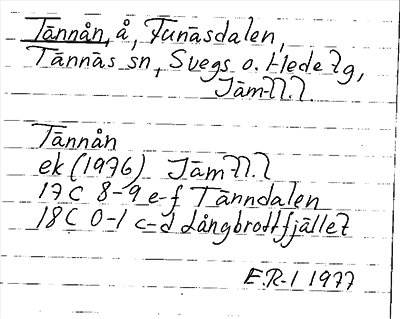 Tännån, å, Funäsdalen,
Tännäs sn, Svegs o. Hede tg,
Jämtl. l.
Tännån
ek (1976) Jämtl. l
17C 8-9 e-f Tänndalen
18C 0-1 c-d Långbrottfjället
E.R-l 1977